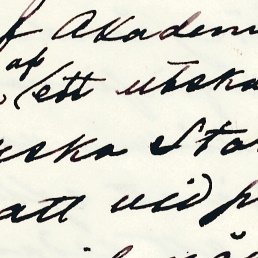 f Akadem
af
(ett utska
ska Sto
att vid p